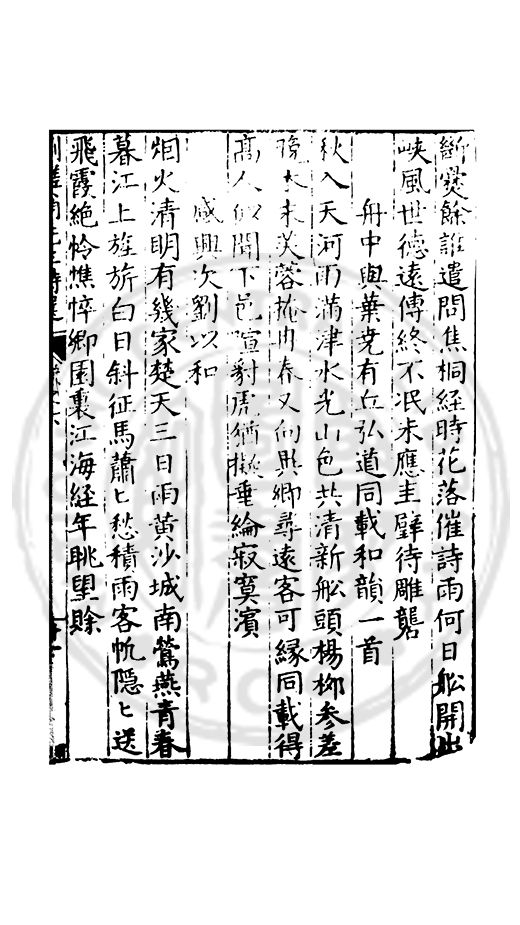 斷爨餘誰遣問焦桐経時花落催詩雨何日舩開出
峽風世德遠傳終不泯未應圭璧待雕礱
舟中與葉堯有丘弘道同載和韻一首
秋入天河雨滿津水光山色共清新舩頭楊柳参差
芙蓉掩冉春又向吳卿尋遠客可縁同載得
髙人 間下邑 豹虎猶擬垂綸寂寞濱
感興次劉以和
烟火清明有幾家楚天三日雨黄沙城南鶯燕青春
暮江上旌旂白日斜征馬蕭〻愁積雨客帆隠〻送
飛霞絶怜憔悴鄉園裏江海経年眺望賒